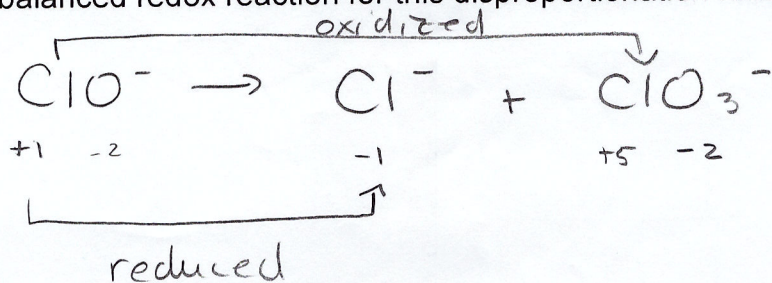 balanced redox reaction for this disproportionation
oxidized
ClO⁻ → Cl⁻ + ClO₃⁻
+1 -2 -1 +5 -2
reduced